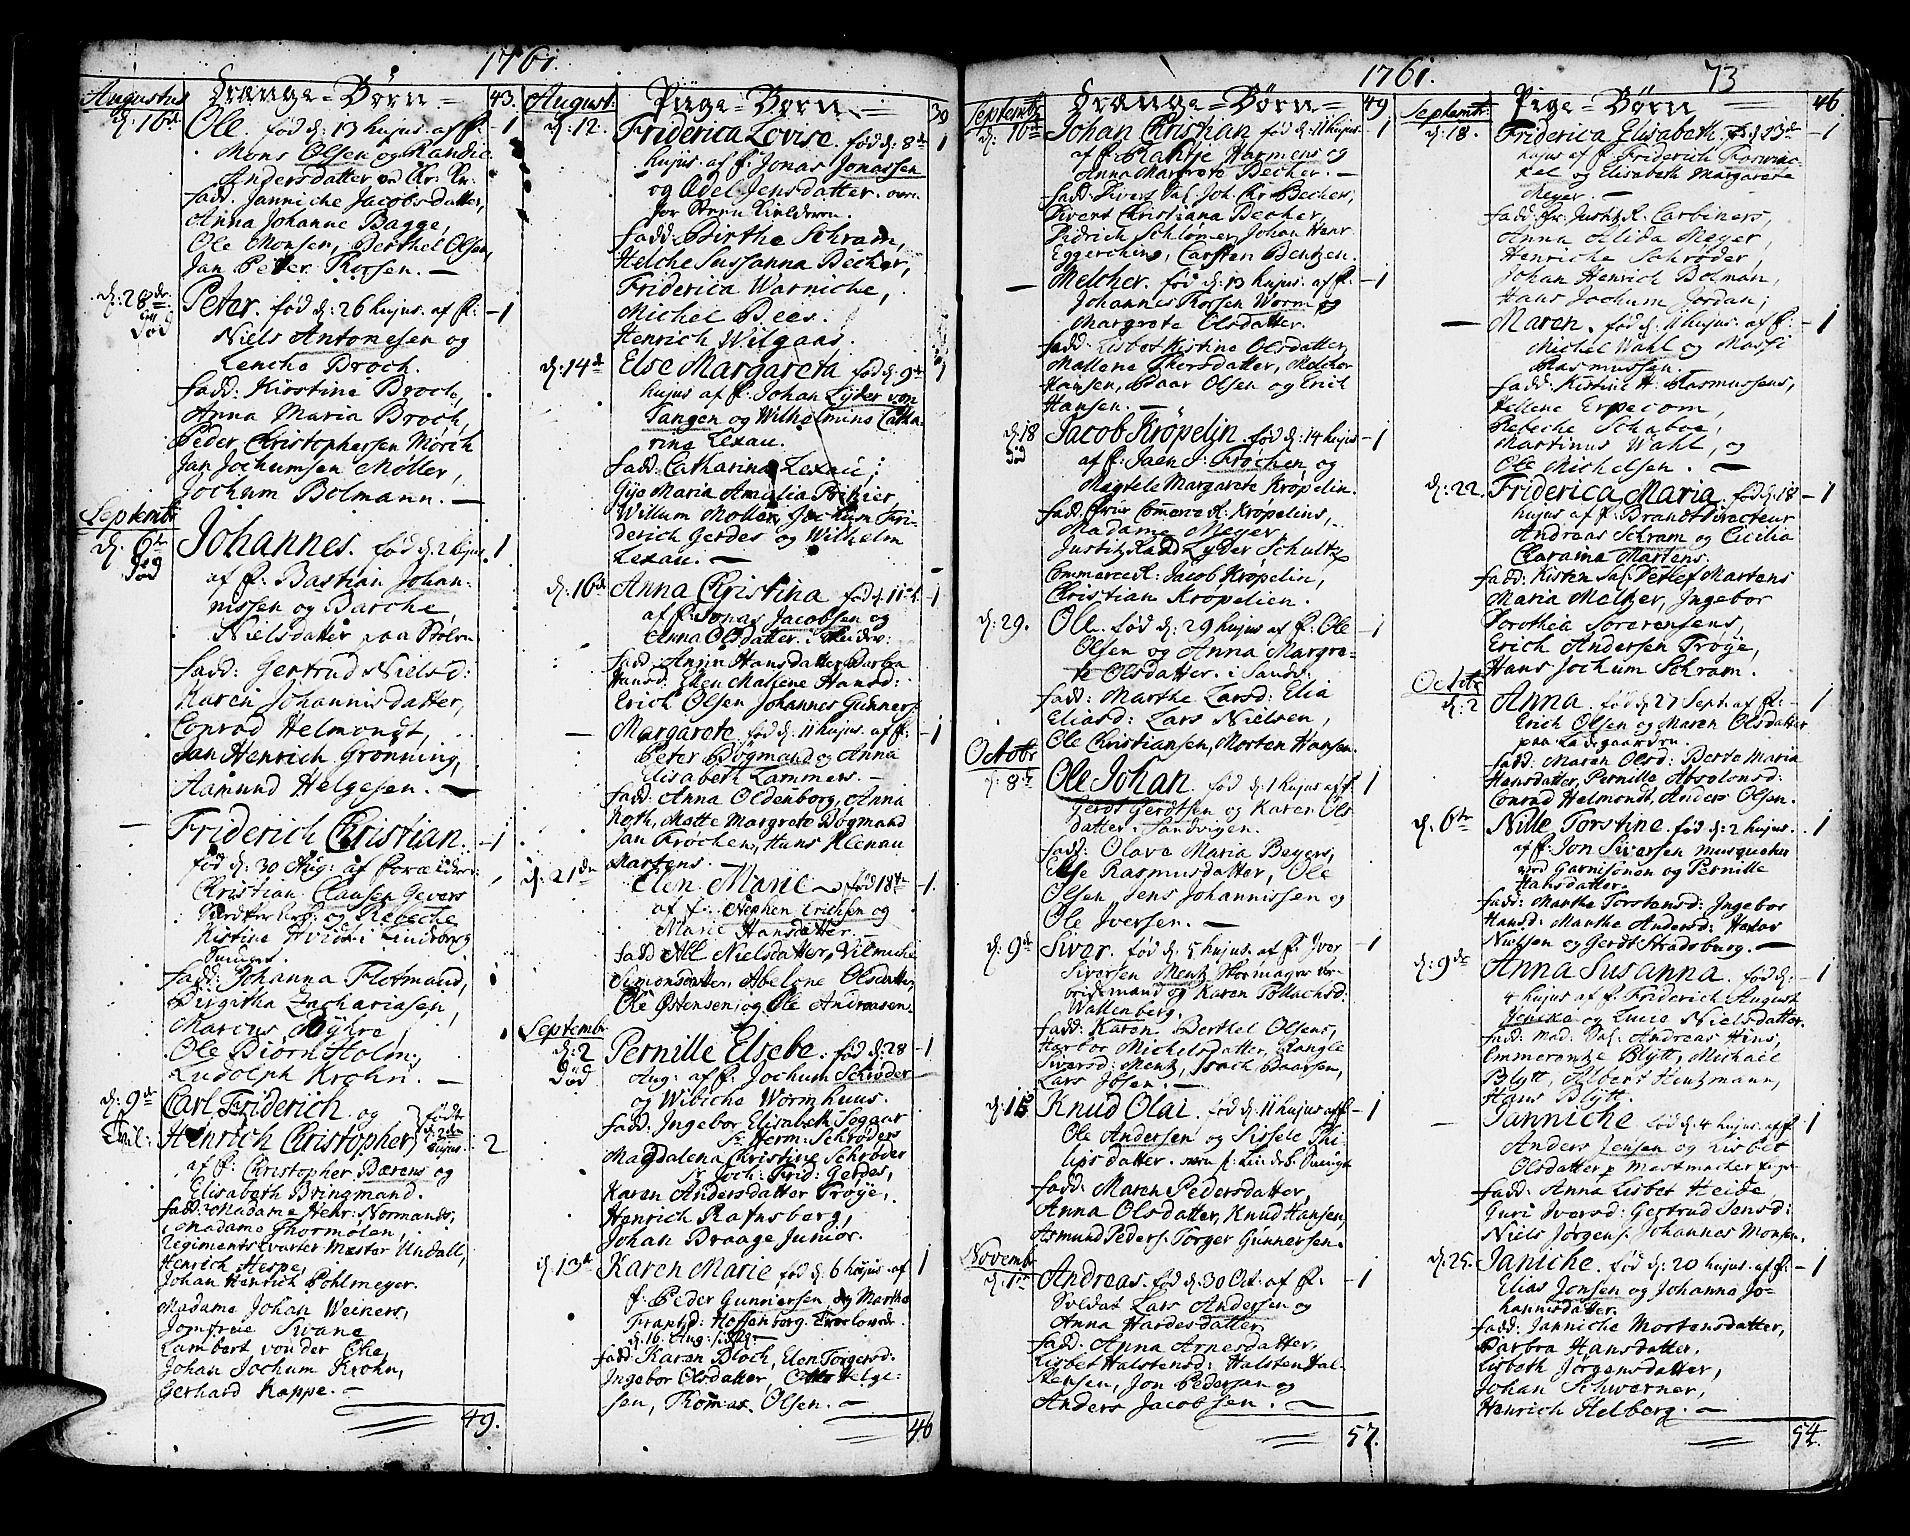 1761.
Augustus
Drænge = Børn
43.
d: 16de
Ole. fød d: 13 hujus. af f: -1
Mons Olsen og Randie
Andersdatter
fadd: Janniche Jacobsdatter,
Anna Johanne Bagge,
Ole Monsen, Berthel Olsen,
Jan Petter Thorsen. —
d: 28de
Død
Peter. fød d: 26 hujus. af f: -1
Niels Antonesen og
Lenche Broch.
fadd: Kirstine Broch,
Anna Maria Broch,
Peder Christophersen Mörch
Jan Jochumsen Møller,
Jochum Bolmann. —
Septembr
d: 6te
Død
Johannes. fød d: 2 hujus. 1
af f: Bastian Johan-
nissen og Barche,
Nielsdatter paa
fadd: Gertrud Nielsd:
Karen Johannisdatter,
Conrad Helmondt,
Jan Henrich Grönning,
Aamund Helgesen. —
—
Friderich Christian. -1
fød d: 30 Aug: af Forældre:
Christian Clausen Gevers
og Rebeche
Kistine
fadd: Johanna Flotmand,
Birgitha Zachariasen,
Marcus Myhre,
Ole Biörn Holm,
Ludolph Krohn. —
d: 9de
Tvil:
Carl Friderich og
Henrich Christopher, fødte d: 2den hujus. 2
af f: Christopher Bærens og
Elisabeth Bringmand.
fadd: Madame Hehr: Normands,
Madame Thormölen,
Regiments Qvarter Mæster Undall,
Henrich Hespe,
Johan Henrich Pohlmeyer.
Madame Johan Weiners,
Jomfrue Svane
Lambert von der Ehe,
Johan Jochum Krohn,
Gerhard Kappe. —
49.
August:
Piige = Børn
39
d: 12.
Friderica Lovise. fød d: 8de 1
hujus. af f: Jonas Jonassen
og Odel Jensdatter.
fadd: Birthe Schram,
Helche Sussanna Becher,
Friderica Warniche,
Michel Bees.
Henrich Wilgaas.
d: 14de
Else Margareta fød d: 9de 1
hujus af f: Johan Lyder von
Tangen og Wilhelmina Catha-
rina Lexau.
fadd: Catharina Lexau;
Gijo Maria Amalia Fritzier,
Willum Moller, Jochum Fri-
derich Gerdes og Wilhelm
Lexau. —
d: 16de
Anna Christina fød d: 11te -1
af f: Jonas Jacobsen og
Anna Olsdatter i
fadd: Anna Hansdatter, Barbra
Hansd: Ellen Mallene Hansd:
Erich Olsen Johannes Gunners:
—
Margarete fød d: 11 hujus. af f: -1
Peter Bögmand og Anna
Elisabeth Lammers. —
fadd: Anna Oldenborg, Anna
Roth, Mette Margrete Bögmand
Jan Fröchen, Hans Klenau
Martens. —
d: 21de
Elen Marie fød 18de -1.
af f: Stephen Erichsen og
Marie Hansdatter.
fadd All Nielsdatter, Vilmiche
Simonsdatter, Abelone Olsdatter,
Ole Ostensen, og Ole Andreasen.
Septembr
d: 2
Død
Pernille Elsebe. fød d: 28 -1
Aug: af f: Jochum Schröder
og Wibiche Wormhuus.
fadd: Ingebor Elisabeth Segaar
Sr Herm: Schröders
Magdalena Christine Schröder
Sr Joch: Frid: Gerdes,
Karen Andersdatter Troye,
Henrich Rafnsberg,
Johan Braage Junior.
d: 13de
Karen Marie fød d: 6 hujus. af 1
f: Peder Gunnersen og Martha
Frantzd: Hoffenborg. Trolovede
d: 16 Aug:
fadd: Karen Bloch, Elen Torgersd:
Ingebor Olsdatter, Helge-
sen, Thomas Olsen. —
46
1761.
73
Septembr
Drænge = Børn
49
d: 16de
Johan Christian fød d: 11 hujus -1
af f: Rahtje Harmens og
Anna Margrete Becher. —
fadd: Sivert Sal: Joh. Chr. Becher,
Sivert Christiana Becher,
Didrich Schlömer, Johan Henr
Eggerching, Carsten Bentzen.
—
Melcher. fød d: 13 hujus. af f: -1
Johannes Thorsen Worm og
Margrete Olsdatter.
fadd: Lisbet Kistine Olsdatter,
Mallene Thorsdatter, Melcher
Hansen, Baar Olsen og Erich
Hansen. —
d: 18
Død
Jacob Kröpelin. fød d: 14 hujus -1
af f: Jaen J: Fröchen og
Magtele Margarete Kröpelin.
fadd: Commerce R: Kröpelins,
Madame Meyer
Justitz Raad Lyder Schultz
Commerce R: Jacob Kröpelin,
Christian Kröpelien.
d: 29.
Ole fød d: 29 hujus af f: Ole -1
Olsen og Anna Margre-
te Olsdatter. i Sands:
fadd: Marthe Larsd: Elia
Eliasd: Lars Nielsen,
Ole Christiansen, Morten Hansen.
Octobr
d: 8de
Ole Johan fød d: 1 hujus af f 1
Gerdt Gerdtsen og Karen Ols-
datter. Sandvigen.
fadd: Olave Maria Beyers,
Else Rasmusdatter, Ole
Olsen Jens Johannissen og
Ole Iversen. —
d: 9de
Sivar. fød d: 5 hujus. af f: Iver -1
Siversen Mentz
og Karen Tollachsd:
Wattenberg.
fadd: Karen Berthel Olsens,
Harbor Michelsdatter, Rangle
Siversd: Mentz, Isach Baarsen,
Lars Josen. —
d: 15
Knud Olai. fød d: 11 hujus af f -1
Ole Andersen og Sissele Phi-
lipsdatter.
fadd: Maren Pedersdatter,
Anna Olsdatter, Knud Hansen,
Asmund Peders: Torger Gunnersen.
Novembr
d: 1te
Andreas. fød d: 30 Oct. af f: -1
Soldat Lars Andersen og
Anna Hardesdatter
fadd: Anna Arnesdatter,
Lisbet Halstensd: Halsten Hal-
stensen, Jon Pedersen og
Anders Jacobsen. —
57.
Septembr:
Pige = Børn
46
d: 18.
Friderica Elisabeth. F: d: 13de -1
hujus af f: Friderich Forwinc-
kel og Elisabeth Margarete
Meyer —
fadd: fr: Justitz R. Carbiners,
Anna Alida Meyer,
Henriche Schröder,
Johan Henrich Bolman,
Hans Jochum Jordan;
—
Maren. fød d: 11 hujus. af f: -1
Michel Wahl og Massi
Rasmussen.
fadd: Kistine H: Rasmussens,
Hellene Erpecom,
Rebeche Schaboe,
Martinus Wahl, og
Ole Michelsen. —
d: 22.
Friderica Maria. fød d: 18 -1
hujus. af f: Brandt Directeur
Andreas Schram og Cicilia
Claraina Martens.
fadd: Kisten Sal: Detlef Martens
Maria Meltzer, Ingebor
Dorothea Sorarensens,
Erich Andersen Troye,
Hans Jochum Schram.
Octobr
d: 2
Anna fød d: 27 Sept. af f: 1
Erich Olsen og Maren Olsdatter
paa Ladegaarden.
fadd: Maren Olsd: Berte Maria
Hansdatter, Pernille Absolonsd:
Conrad Helmondt, Anders Olsen.
d: 6te
Nille Torstine. fød d: 2 hujus. 1
af f: Jon Siversen musqueter
ved Garnisonen og Pernille
Hansdatter.
fadd: Martha Torstensd: Ingebor
Hansd: Marthe Andersd: Helov
Nielsen og Gerdt Stradsburg. —
d: 9de
Anna Susanna. fød d: -1
4 hujus af f: Friderich August
Venike og Lucie Nielsdatter.
fadd: Mad: Sal: Andreas Hins,
Emmerentze Blytt, Michael
Blytt, Albert Hentzmann,
Hans Blytt.
—
Janniche fød d: 4 hujus. af f 1
Anders Jensen og Lisbet
Olsdatter
fadd: Anna Lisbet Heide,
Guri Iversd: Gertrud Jensd:
Niels Jörgens: Johannes Monsen.
d: 25.
Janiche. fød d: 20 hujus. af f: -1
Elias Jonsen og Johanna Jo-
hannisdatter.
fadd: Janniche Mortensdatter,
Barbra Hansdatter,
Lisbeth Jörgensdatter,
Johan Schwerner,
Henrich Helberg. —
54.